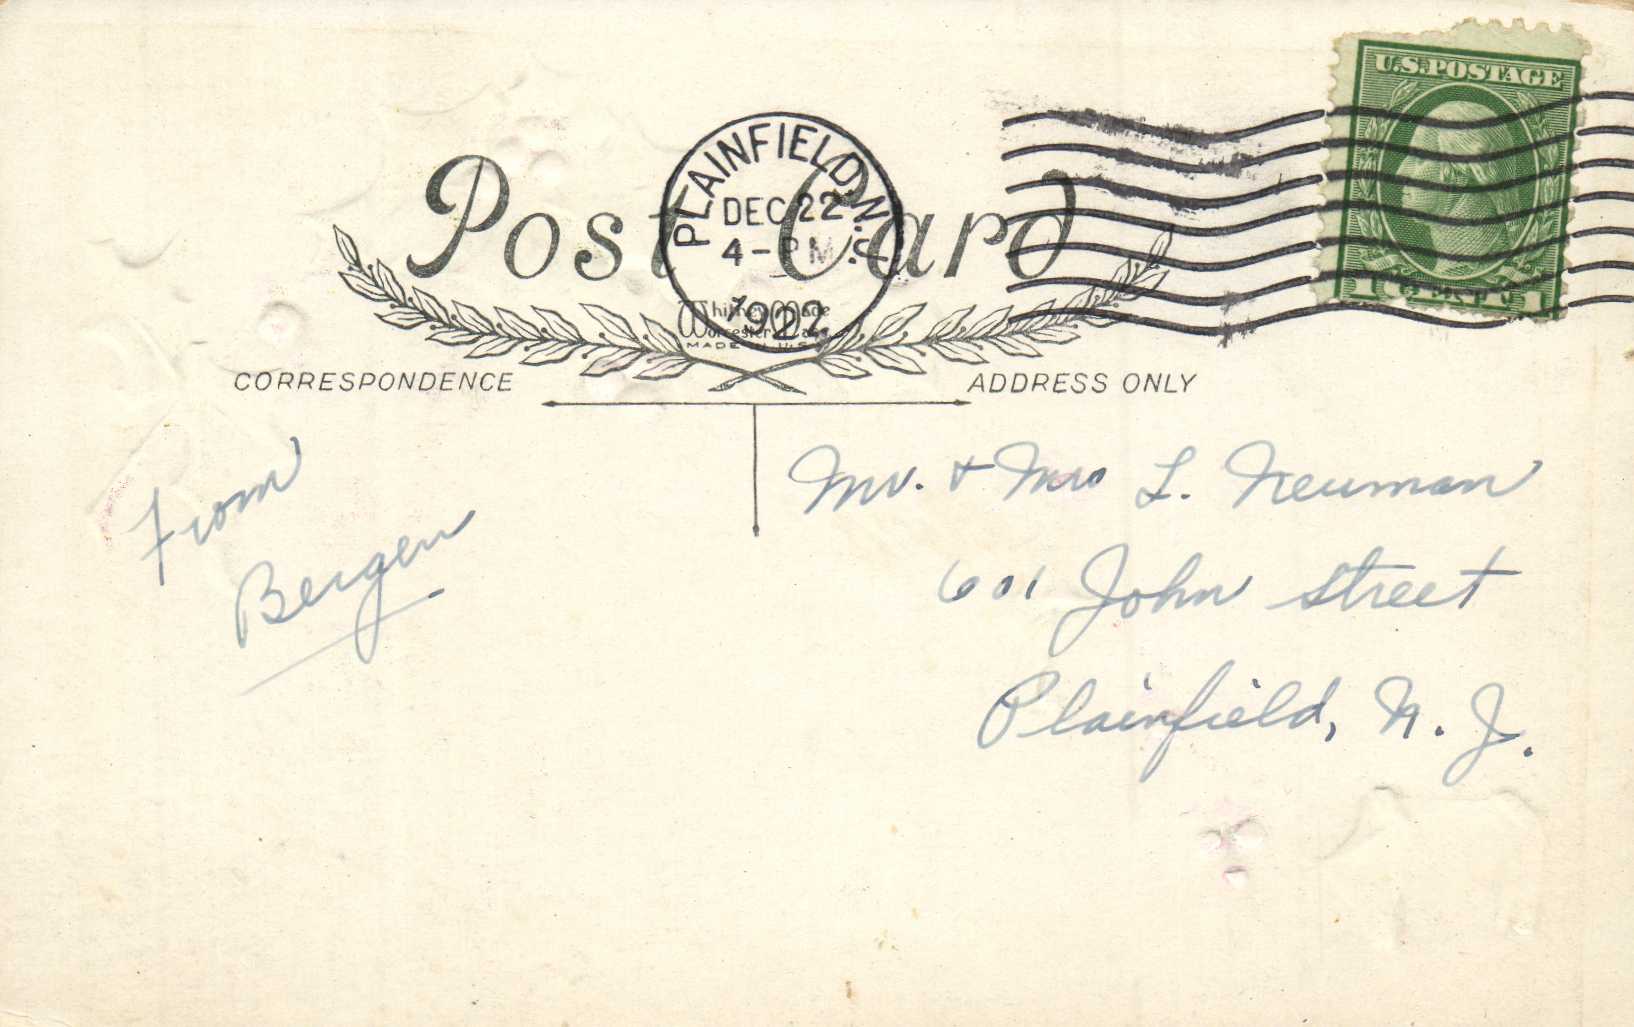 U.S. POSTAGE
1 CENT 1
PLAINFIELD, N.J.
DEC 22
4-PM
192
Post Card
Whitney Made
Worcester, Mass.
MADE IN U.S.A.
CORRESPONDENCE
ADDRESS ONLY
From
Bergen
Mr. + Mrs L. Neuman
601 John Street
Plainfield, N. J.